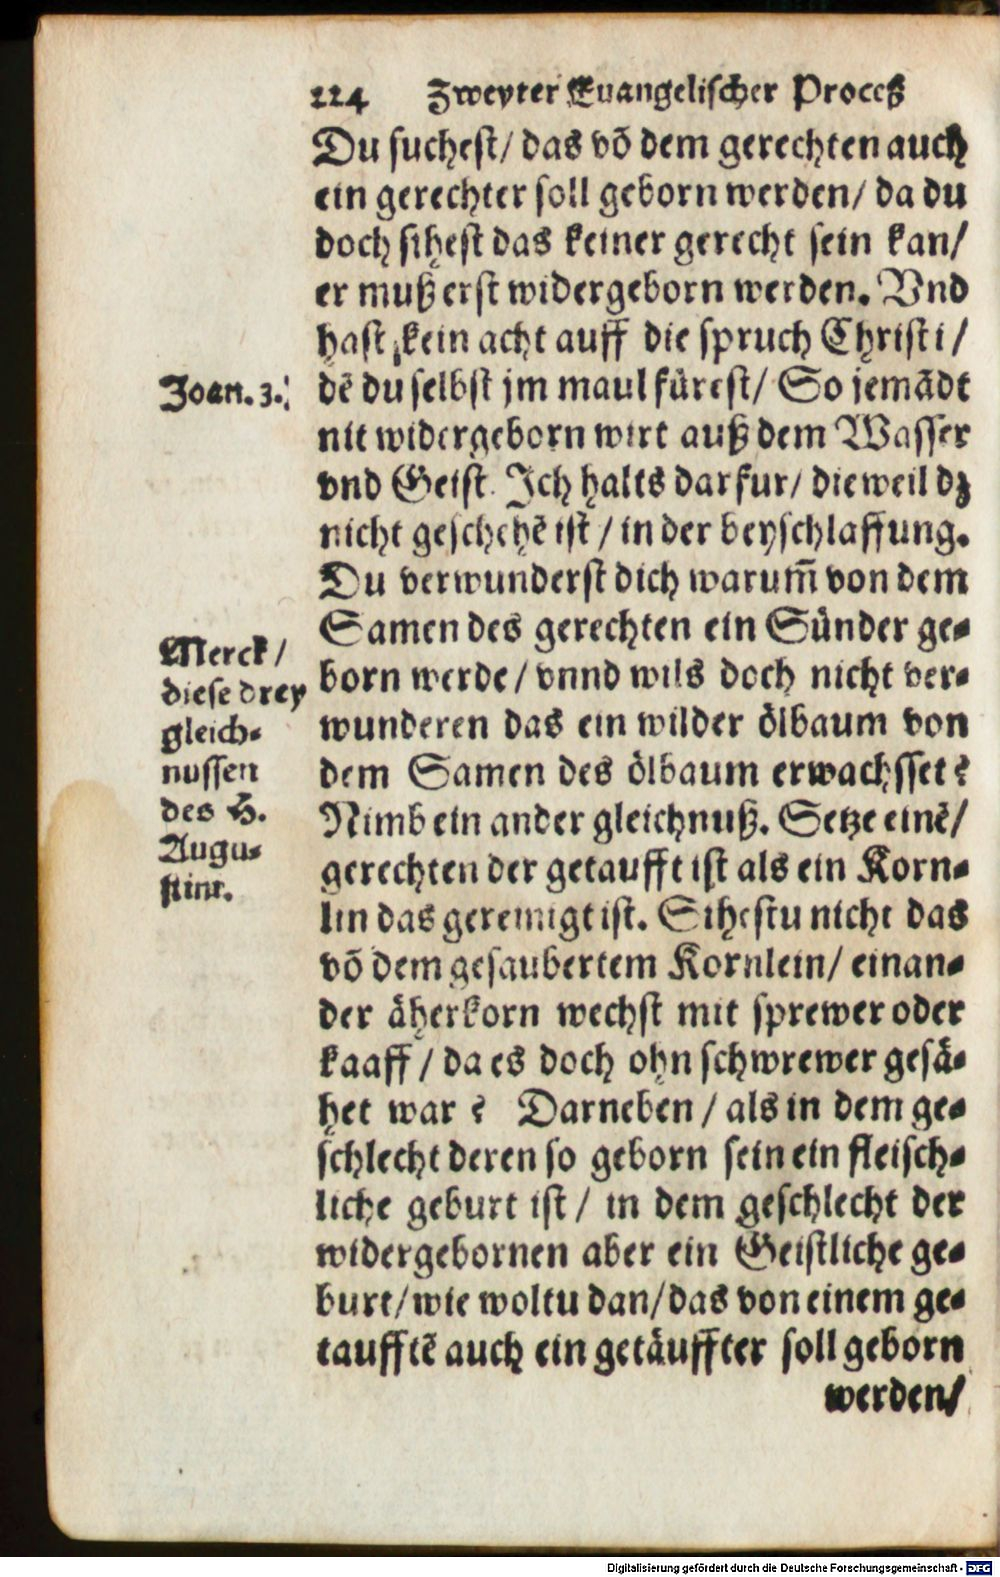 224 Zweyter Euangelischer Proceß
Du suchest/ das võ dem gerechten auch
ein gerechter soll geborn werden/ da du
doch sihest das keiner gerecht sein kan/
er muß erst widergeborn werden. Vnd
hast kein acht auff die spruch Christi/
Joan. 3.
dẽ du selbst jm maul fürest/ So jemãdt
nit widergeborn wirt auß dem Wasser
vnd Geist. Ich halts darfur/ dieweil dz
nicht geschehẽ ist/ in der beyschlaffung.
Du verwunderst dich warum̃ von dem
Samen des gerechten ein Sünder ge-
Merck/
diese drey
gleich-
nussen
des H.
Augu-
stini.
born werde/ vnnd wils doch nicht ver-
wunderen das ein wilder ölbaum von
dem Samen des ölbaum erwachsset?
Nimb ein ander gleichnuß. Setze einẽ/
gerechten der getaufft ist als ein Korn-
lin das gereinigt ist. Sihestu nicht das
võ dem gesaubertem Kornlein/ einan-
der äherkorn wechst mit sprewer oder
kaaff/ da es doch ohn schwrewer gesä-
het war? Darneben/ als in dem ge-
schlecht deren so geborn sein ein fleisch-
liche geburt ist/ in dem geschlecht der
widergebornen aber ein Geistliche ge-
burt/ wie woltu dan/ das von einem ge-
taufftẽ auch ein getäuffter soll geborn
werden/
Digitalisierung gefördert durch die Deutsche Forschungsgemeinschaft - DFG